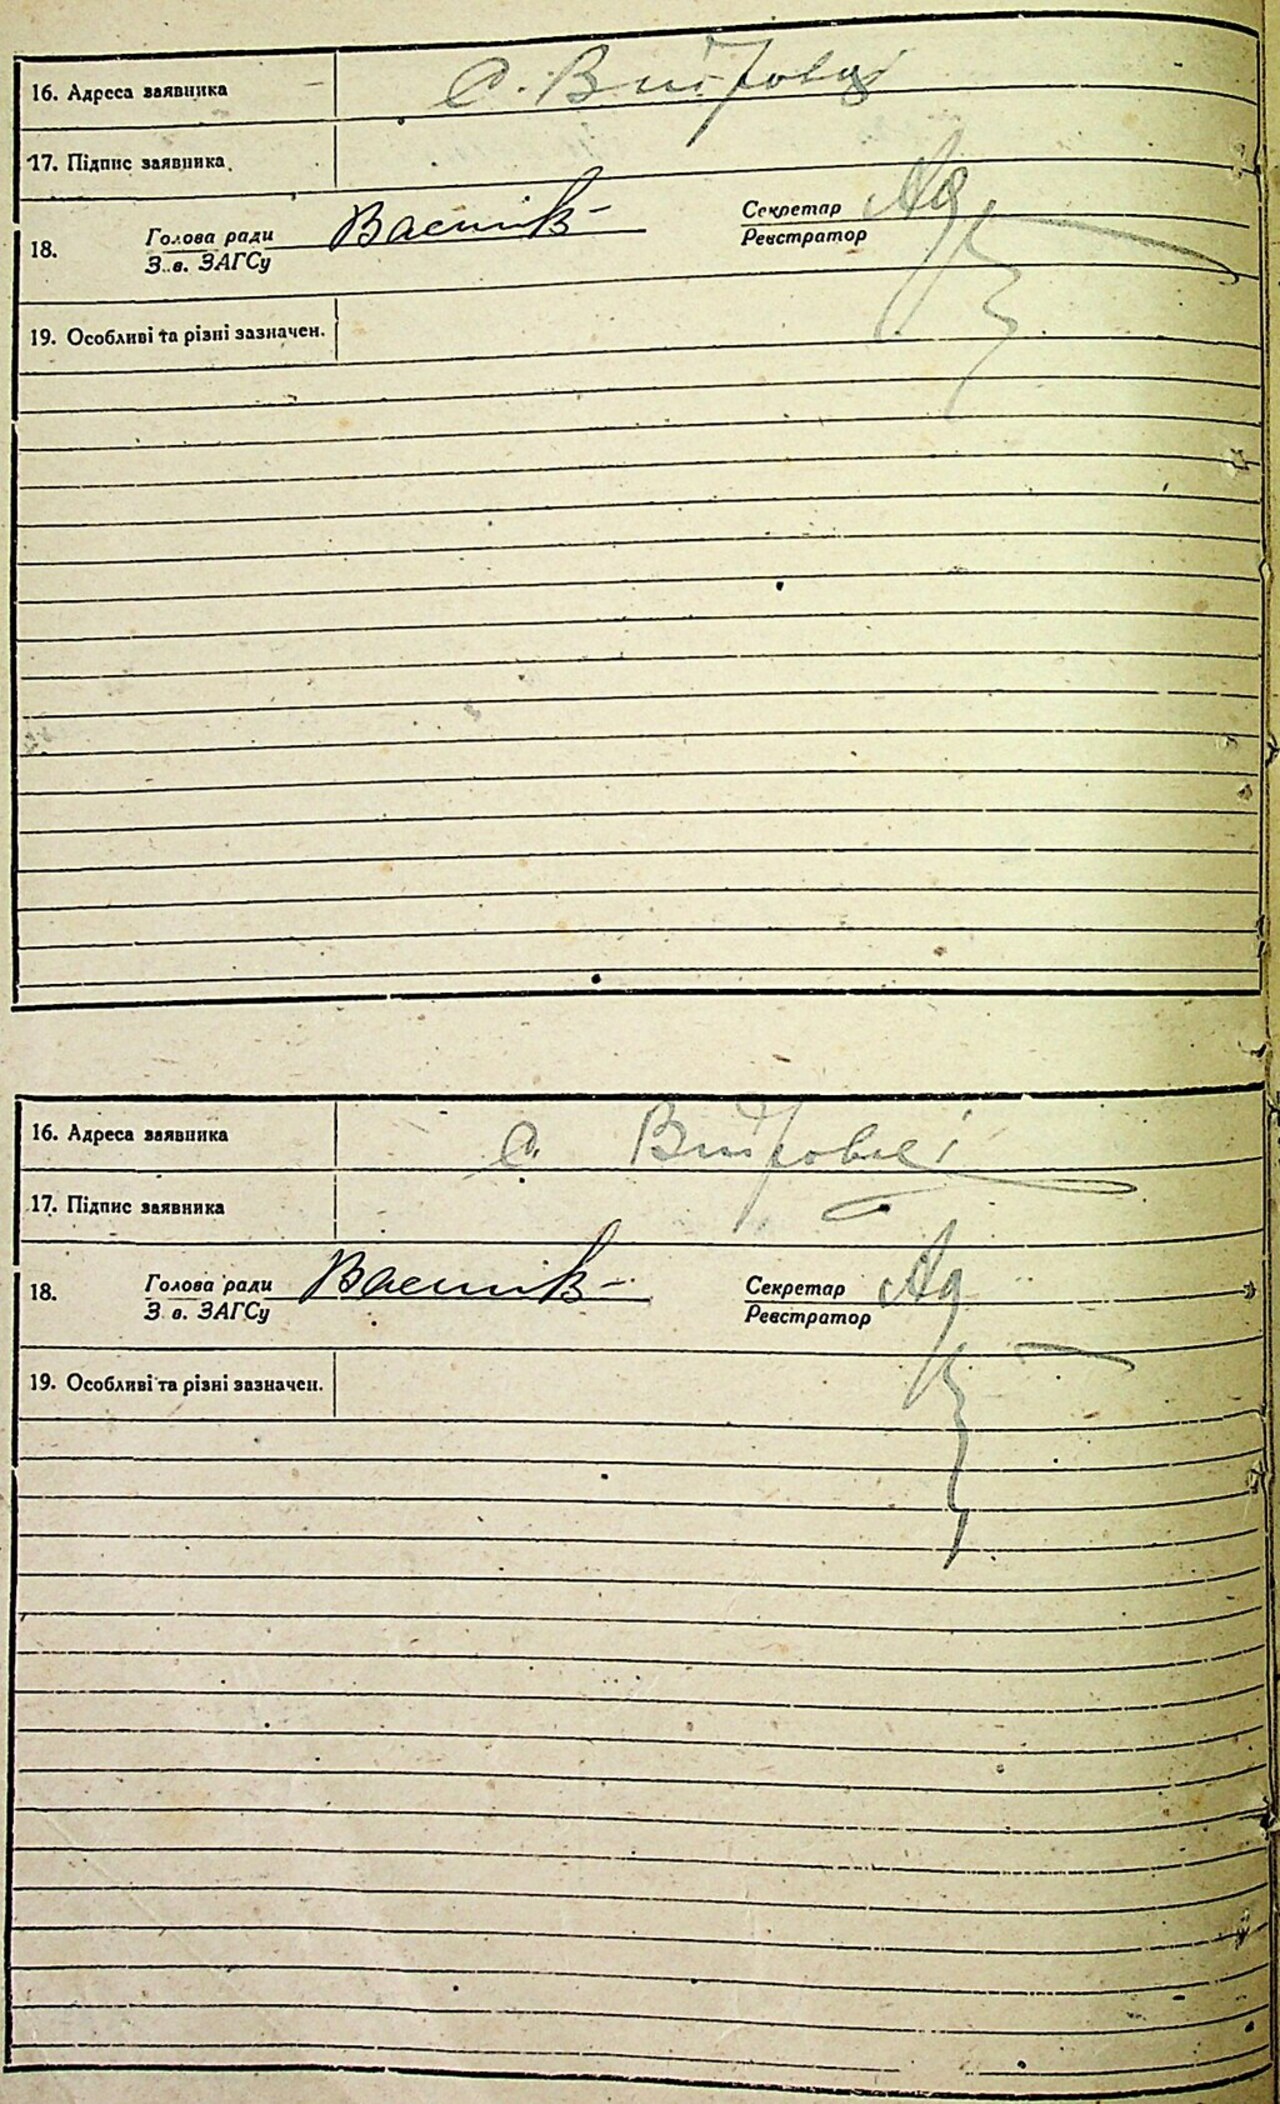 16. Адреса заявника С. Вітровці
17. Підпис заявника
18. Голова ради
З. в. ЗАГСу
Секретар
Реєстратор
19. Особливі та різні зазначен.
16. Адреса заявника С. Вітровці
17. Підпис заявника
18. Голова ради
З. в. ЗАГСу
Секретар
Реєстратор
19. Особливі та різні зазначен.